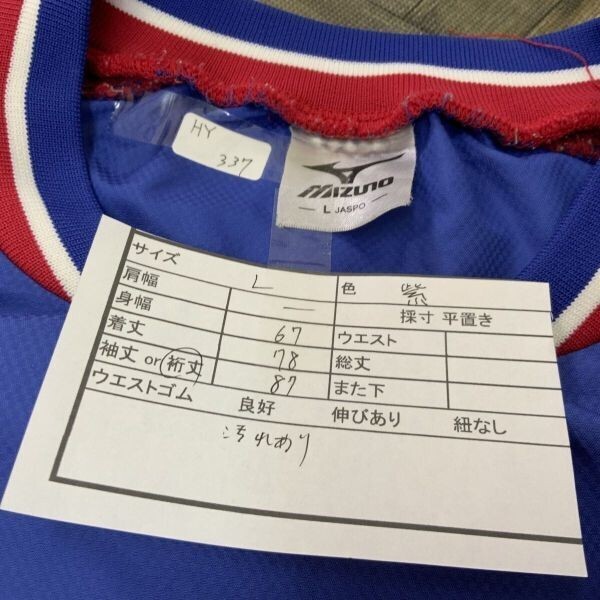 HY
337
MIZUNO
L JASPO
サイズ L 色 紫
肩幅 — 採寸 平置き
身幅 67 ウエスト
着丈 78 総丈
袖丈 or 裄丈 87 また下
ウエストゴム 良好 伸びあり 紐なし
汚れあり